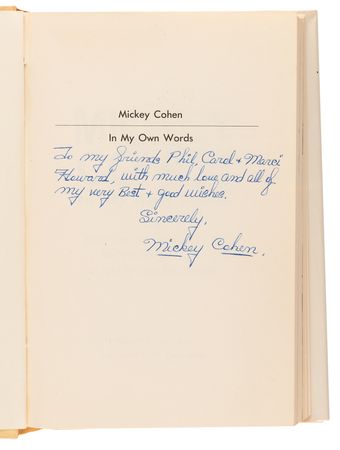 Mickey Cohen
In My Own Words
To my friends Phil, Carol + Marci
Howard, with much love and all of
my very Best + good wishes.
Sincerely,
Mickey Cohen.